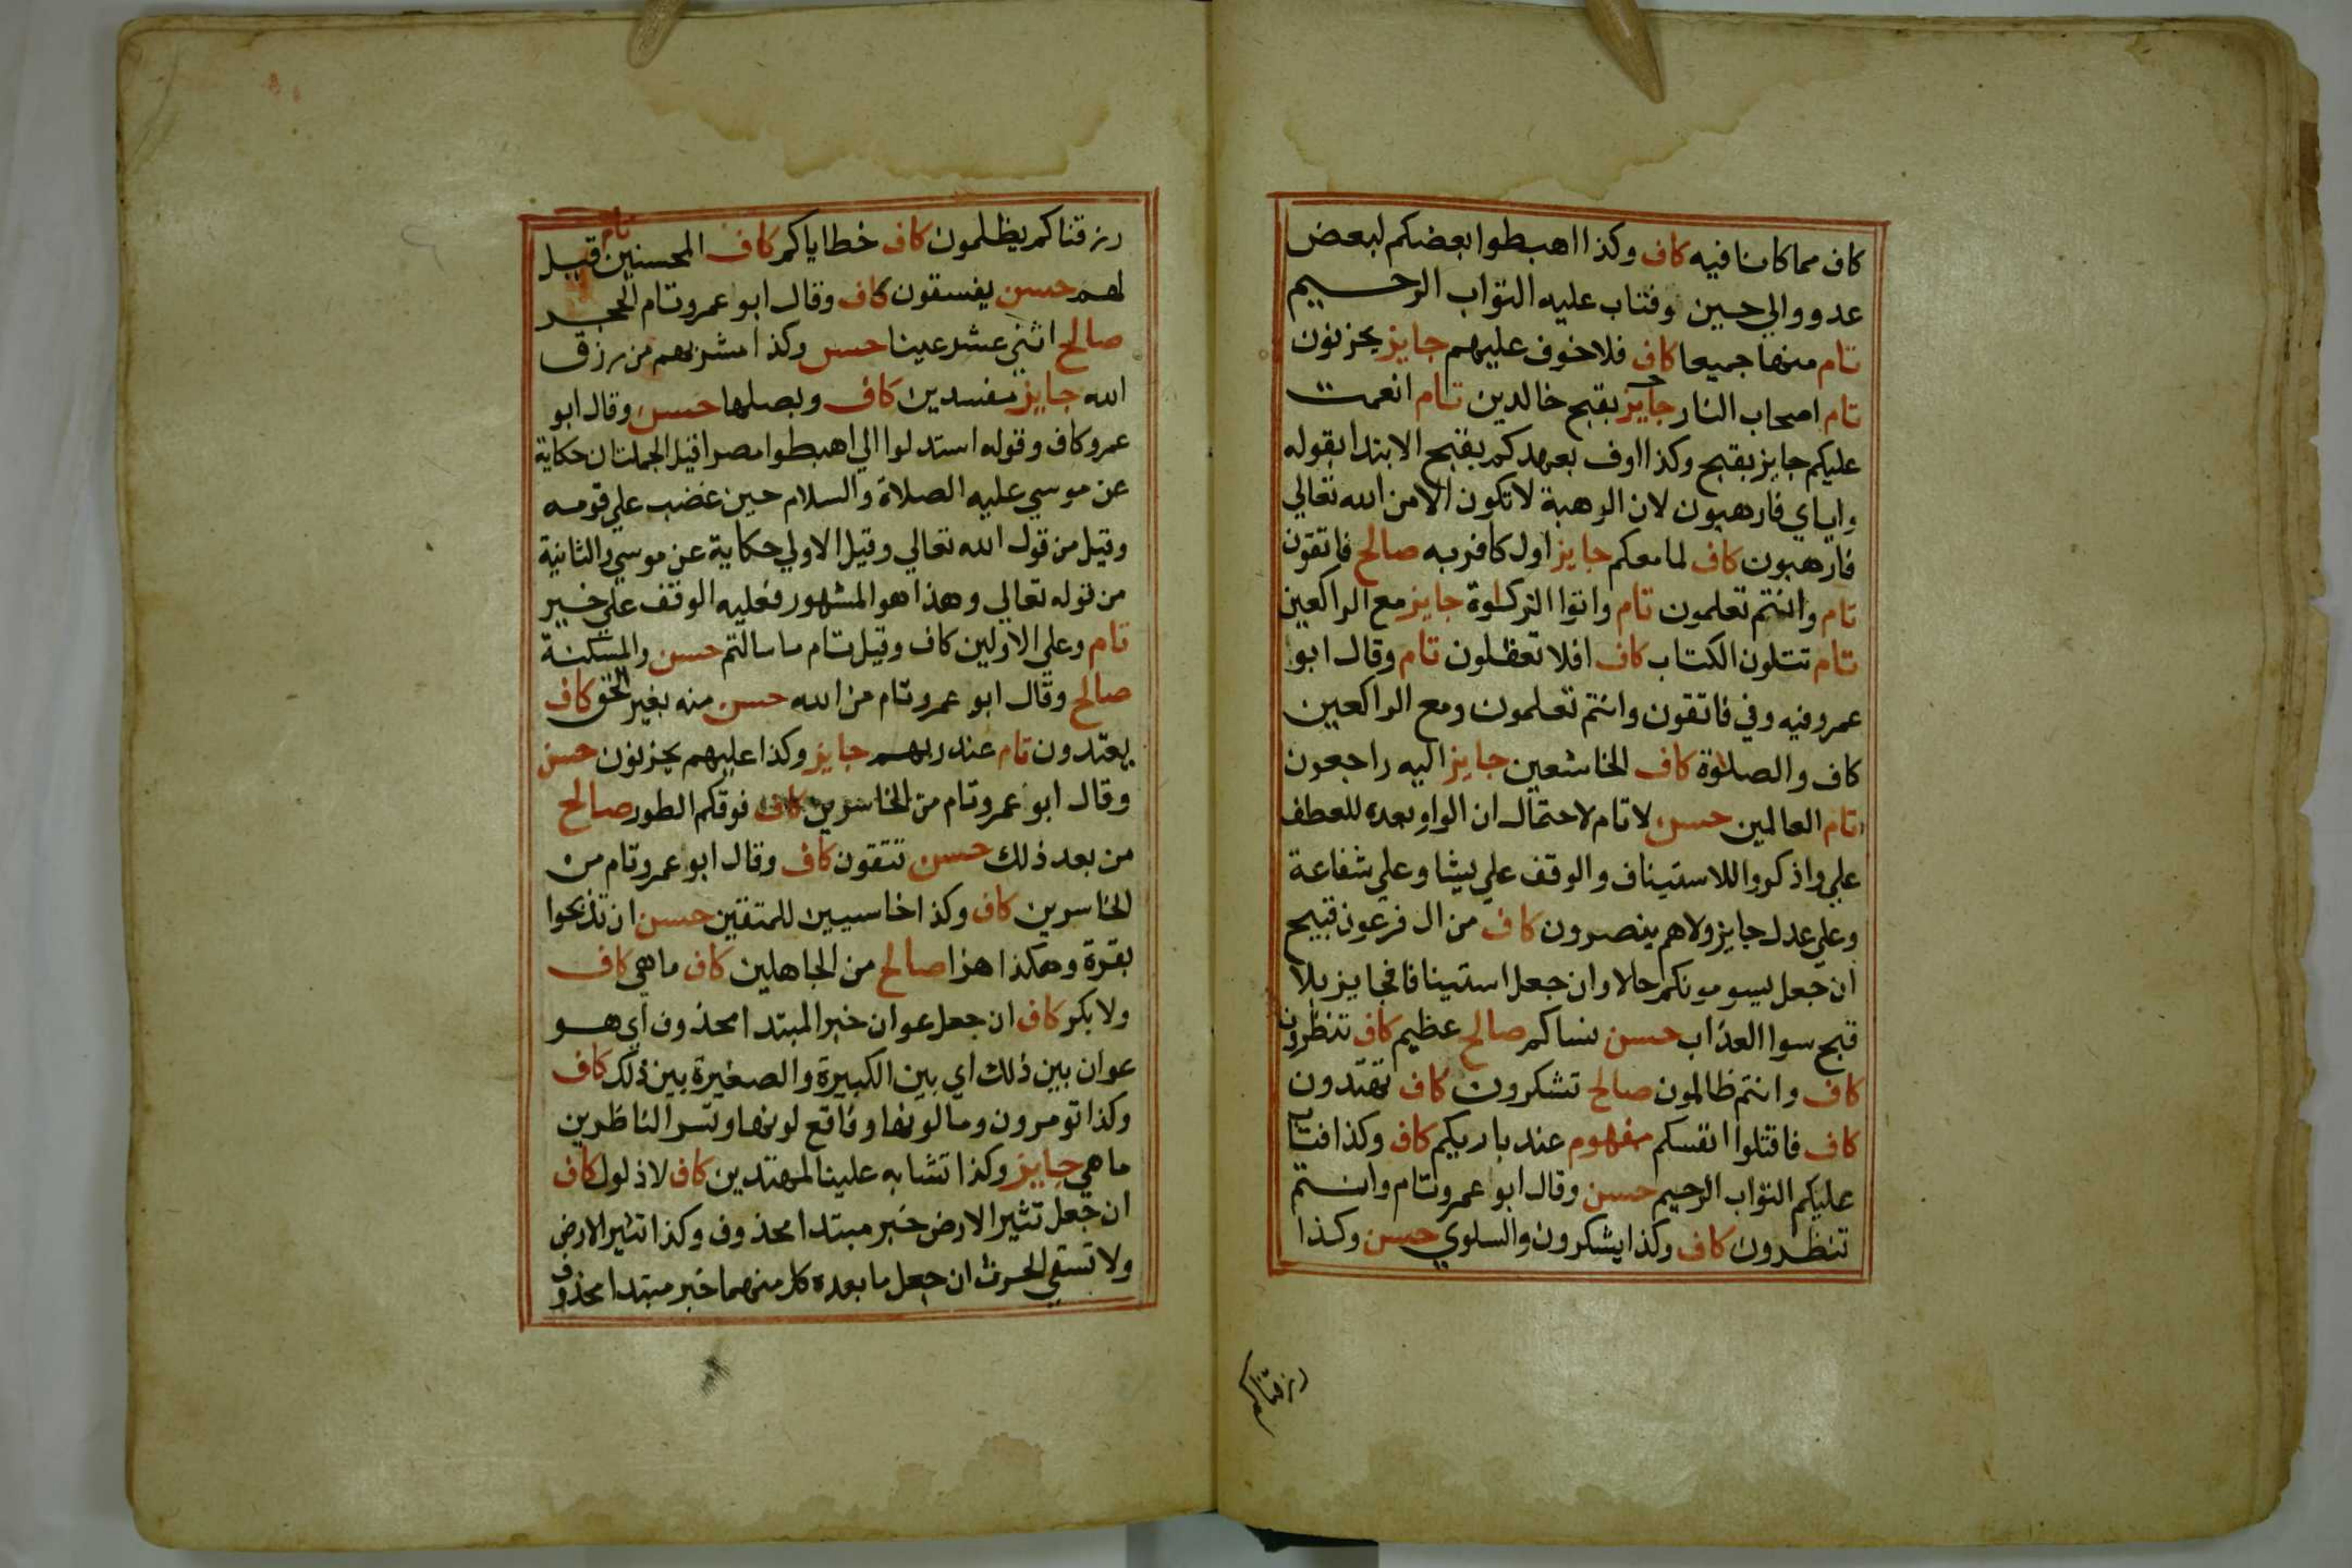 كاف مما كانا فيه كاف وكذا اهبطوا بعضكم لبعض
عدو والي حين وفتاب عليه التواب الرحيم
تام منها جميعا كاف فلا خوف عليهم جايز يحزنون
تام اصحاب النار جايز بقبح خالدين تام انعمت
عليكم جايز بقبح وكذا اوف بعهدكم بقبح الابتدا بقوله
واياي فارهبون لان الرهبة لا تكون الا من الله تعالي
فارهبون كاف لما معكم جايز اول كافر به صالح فاتقون
تام وانتم تعلمون تام واتوا الزكوة جايز مع الراكعين
تام تتلون الكتاب كاف افلا تعقلون تام وقال ابو
عمرو فيه وفي فاتقون وانتم تعلمون ومع الراكعين
كاف والصلوة كاف الخاشعين جايز اليه راجعون
تام العالمين حسن لا تام لاحتمال ان الواو بعده للعطف
علي واذكروا للاستيناف والوقف علي شيئا وعلي شفاعة
وعلي عدل جايز ولا هم ينصرون كاف من ال فرعون قبيح
ان جعل يسومونكم حالا وان جعل استينافا فجايز بلا
قبح سوا العذاب حسن نساكم صالح عظيم كاف تنظرون
كاف وانتم ظالمون صالح تشكرون كاف تهتدون
كاف فاقتلوا انفسكم مفهوم عند باريكم كاف وكذا فتاب
عليكم التواب الرحيم حسن وقال ابو عمرو تام وانتم
تنظرون كاف وكذا يشكرون والسلوي حسن وكذا
رزقناكم
رزقناكم يظلمون كاف خطاياكم كاف المحسنين تام قيل
لهم حسن يفسقون كاف وقال ابو عمرو تام الحجر
صالح اثنتي عشر عينا حسن وكذا مشربهم من رزق
الله جايز مفسدين كاف وبصلها حسن وقال ابو
عمرو كاف وقوله استدلوا الي اهبطوا مصرا قيل الجملتان حكاية
عن موسي عليه الصلاة والسلام حين غضب علي قومه
وقيل من قول الله تعالي وقيل الاولي حكاية عن موسي والثانية
من قوله تعالي وهذا هو المشهور فعليه الوقف علي خير
تام وعلي الاولين كاف وقيل تام ما سالتم حسن والمسكنة
صالح وقال ابو عمرو تام من الله حسن منه بغير الحق كاف
يعتدون تام عند ربهم جايز وكذا عليهم يحزنون حسن
وقال ابو عمرو تام من الخاسرين كاف فوقكم الطور صالح
من بعد ذلك حسن تتقون كاف وقال ابو عمرو تام من
الخاسرين كاف وكذا خاسيين للمتقين حسن ان تذبحوا
بقرة وهكذا هزا صالح من الجاهلين كاف ما هي كاف
ولا بكر كاف ان جعل عوان خبر المبتدا محذوف اي هو
عوان بين ذلك اي بين الكبيرة والصغيرة بين ذلك كاف
وكذا تومرون وما لونها وفاقع لونها وتسر الناظرين
ما هي جايز وكذا تشابه علينا لمهتدين كاف لا ذلول كاف
ان جعل تثير الارض خبر مبتدا محذوف وكذا تثير الارض
ولا تسقي الحرث ان جعل ما بعده كل منهما خبر مبتدا محذوف